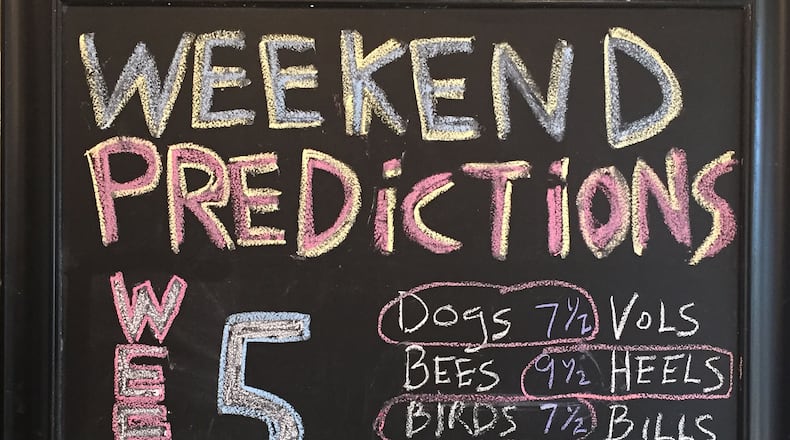 WEEKEND
PREDiCTiONS
WEE
5
DOGS 7½ VOLS
BEES 9½ HEELS
BIRDS 7½ BILLS